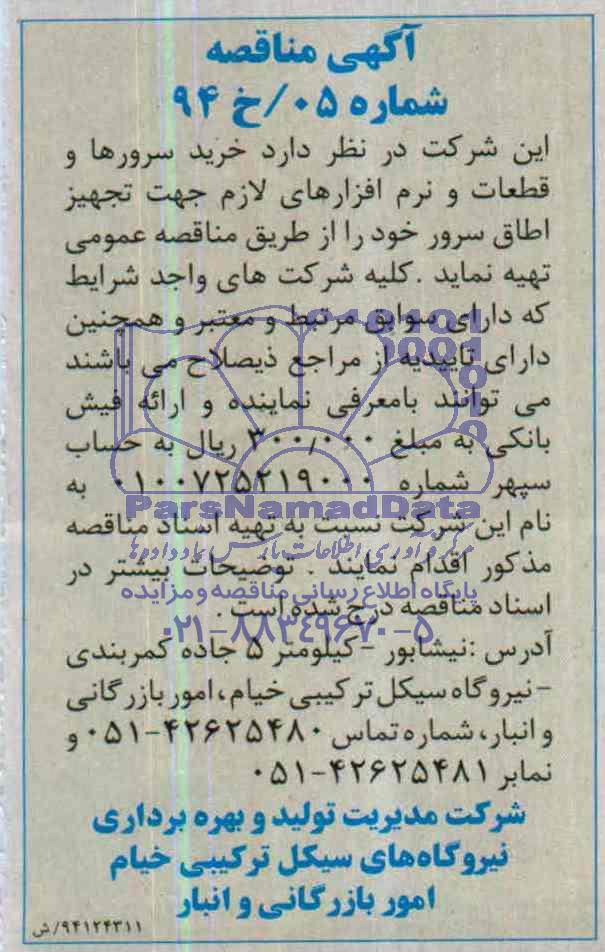 آگهی مناقصه
شماره ۰۵/خ ۹۴
این شرکت در نظر دارد خرید سرورها و
قطعات و نرم افزارهای لازم جهت تجهیز
اطاق سرور خود را از طریق مناقصه عمومی
تهیه نماید .کلیه شرکت های واجد شرایط
که دارای سوابق مرتبط و معتبر و همچنین
دارای تاییدیه از مراجع ذیصلاح می باشند
می توانند بامعرفی نماینده و ارائه فیش
بانکی به مبلغ ۳۰۰,۰۰۰ ریال به حساب
سپهر شماره ۰۱۰۰۷۲۵۲۱۹۰۰۰ به
ParsNamadData
نام این شرکت نسبت به تهیه اسناد مناقصه
مذکور اقدام نمایند . توضیحات بیشتر در
پایگاه اطلاع رسانی مناقصه و مزایده
اسناد مناقصه درج شده است .
۰۲۱-۸۸۳۴۹۶۷۰-۵
آدرس :نیشابور -کیلومتر ۵ جاده کمربندی
-نیروگاه سیکل ترکیبی خیام، امور بازرگانی
و انبار، شماره تماس ۰۵۱-۴۲۶۲۵۴۸۰ و
نمابر ۰۵۱-۴۲۶۲۵۴۸۱
شرکت مدیریت تولید و بهره برداری
نیروگاه‌های سیکل ترکیبی خیام
امور بازرگانی و انبار
۹۴۱۲۴۳۱۱/ش